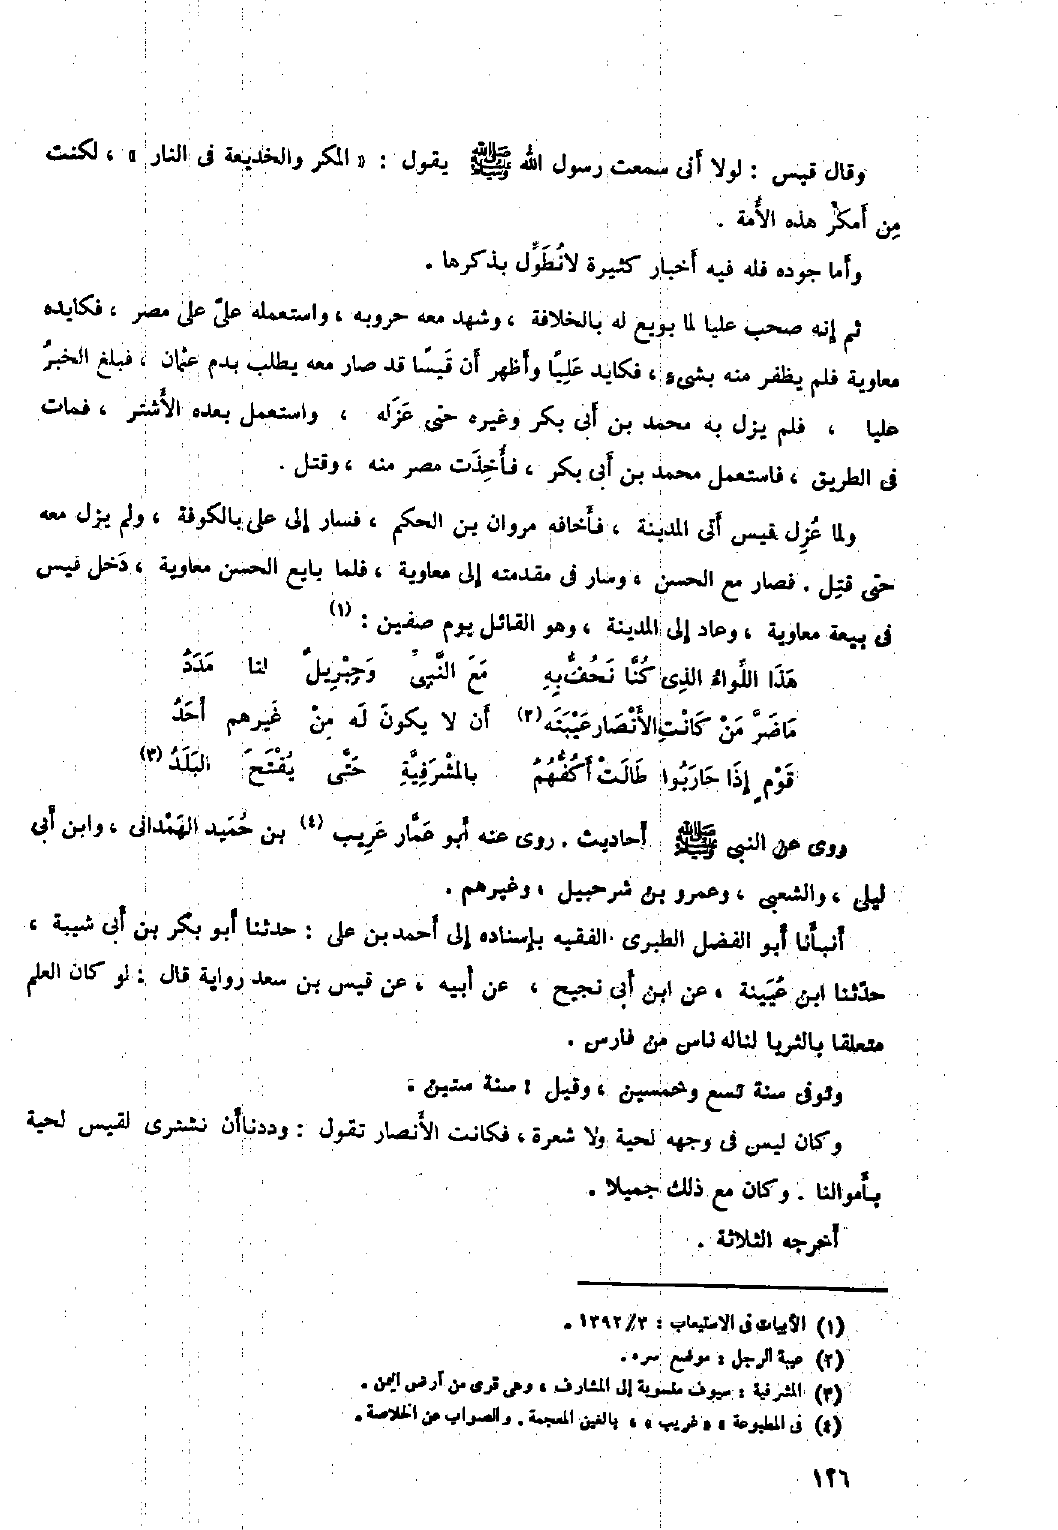 وقال قيس : لولا أنى سمعت رسول الله ﷺ يقول : « المكر والخديعة فى النار » ، لكنت
مِن أَمكَرْ هذه الأُمة .
وأَما جوده فله فيه أَخبار كثيرة لانُطَوِّل بذكرها .
ثم إنه صحب عليا لما بويع له بالخلافة ، وشهد معه حروبه ، واستعمله علىّ على مصر ، فكايده
معاوية فلم يظفر منه بشىء ، فكايد عَلِيًا وأَظهر أَن قَيسًا قد صار معه يطلب بدم عثمان ، فبلغ الخبرُ
عليا ، فلم يزل به محمد بن أَبى بكر وغيره حتى عَزَله ، واستعمل بعده الأَشتر ، فمات
فى الطريق ، فاستعمل محمد بن أَبى بكر ، فأُخِذَت مصر منه ، وقتل .
ولما عُزِل قيس أَتى المدينة ، فأَخافه مروان بن الحكم ، فسار إلى على بالكوفة ، ولم يزل معه
حتى قتِل . فصار مع الحسن ، وسار فى مقدمته إلى معاوية ، فلما بايع الحسن معاوية ، دَخل قيس
فى بيعة معاوية ، وعاد إلى المدينة ، وهو القائل يوم صفين : (١)
هَذَا اللَّواءُ الذِى كُنَّا نَحُفُّ بِهِ مَعَ النَّبِىِّ وَجِبْرِيلٌ لنا مَدَدُ
مَاضَرَّ مَنْ كَانَتِ الأَنْصَار عَيْبَتَه (٢) أَن لا يكونَ لَه مِنْ غَيرهم أَحَدُ
قَوْمٍ إِذَا حَارَبُوا طَالَتْ أَكُفُّهُمُ بالمشْرَفِيَّةِ حَتَّى يُفْتَحَ البَلَدُ (٣)
روى عن النبى ﷺ أحاديث . روى عنه أَبو عَمَّار عَرِيب (٤) بن حُمَيد الهَمْدانى ، وابن أَبى
ليلى ، والشعبى ، وعمرو بن شرحبيل ، وغيرهم .
أَنبأَنا أَبو الفضل الطبرى الفقيه بإسناده إلى أَحمد بن على : حدثنا أَبو بكر بن أَبى شيبة ،
حدّثنا ابن عُيَينة ، عن ابن أَبى نجيح ، عن أَبيه ، عن قيس بن سعد رواية قال : لو كان العلم
متعلقا بالثريا لناله ناس من فارس .
وتوفى سنة تسع وخمسين ، وقيل : سنة ستين .
وكان ليس فى وجهه لحية ولا شعرة ، فكانت الأَنصار تقول : وددنا أَن نشترى لقيس لحية
بأَموالنا . وكان مع ذلك جميلا .
أَخرجه الثلاثة .
(١) الأبيات فى الاستيعاب : ٣/ ١٣٩٢ .
(٢) عيبة الرجل : موضع سره .
(٣) المشرفية : سيوف منسوبة إلى المشارف ، وهى قرى من أرض اليمن .
(٤) فى المطبوعة : « غريب » ، بالغين المعجمة . والصواب عن الخلاصة .
١٢٦